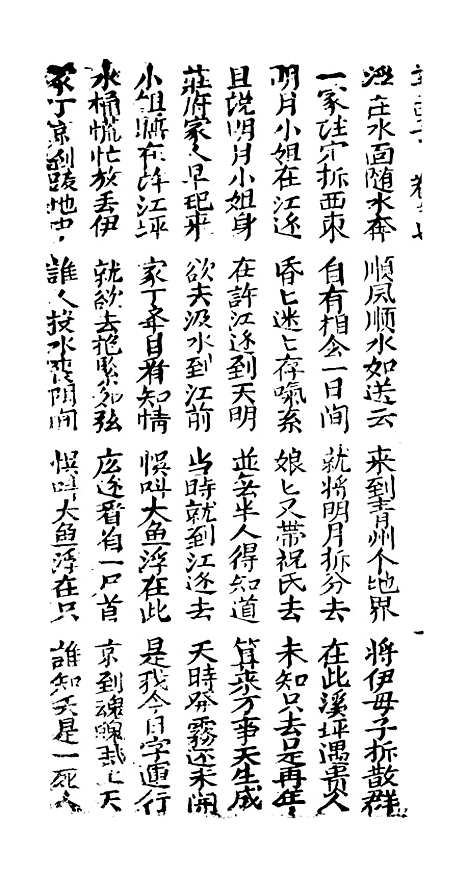 浮在水面随水奔 順風順水如送云 来到青州个地界 將伊母子拆散群
一家註定拆西東 自有相会一日間 就將明月拆分去 在此溪坪遇貴人
明月小姐在江边 昏匕迷匕存氣系 娘匕又帶祝氏去 未知只去是再年
且説明月小姐身 在許江边到天明 並無半人得知道 算来万事天生成
莊府家人早起来 欲去汲水到江前 當時就到江边去 天時發霧还未開
小姐在許江坪 家丁目看知情 悞叫大鱼浮在此 是我今日字運行
水桶慌忙放丢伊 就欲去抱緊如弦 边看有一尸首 京到魂魄匕天
家丁京到跋地中 誰人投水喪陰間 悞叫大鱼浮在只 誰知是一死人